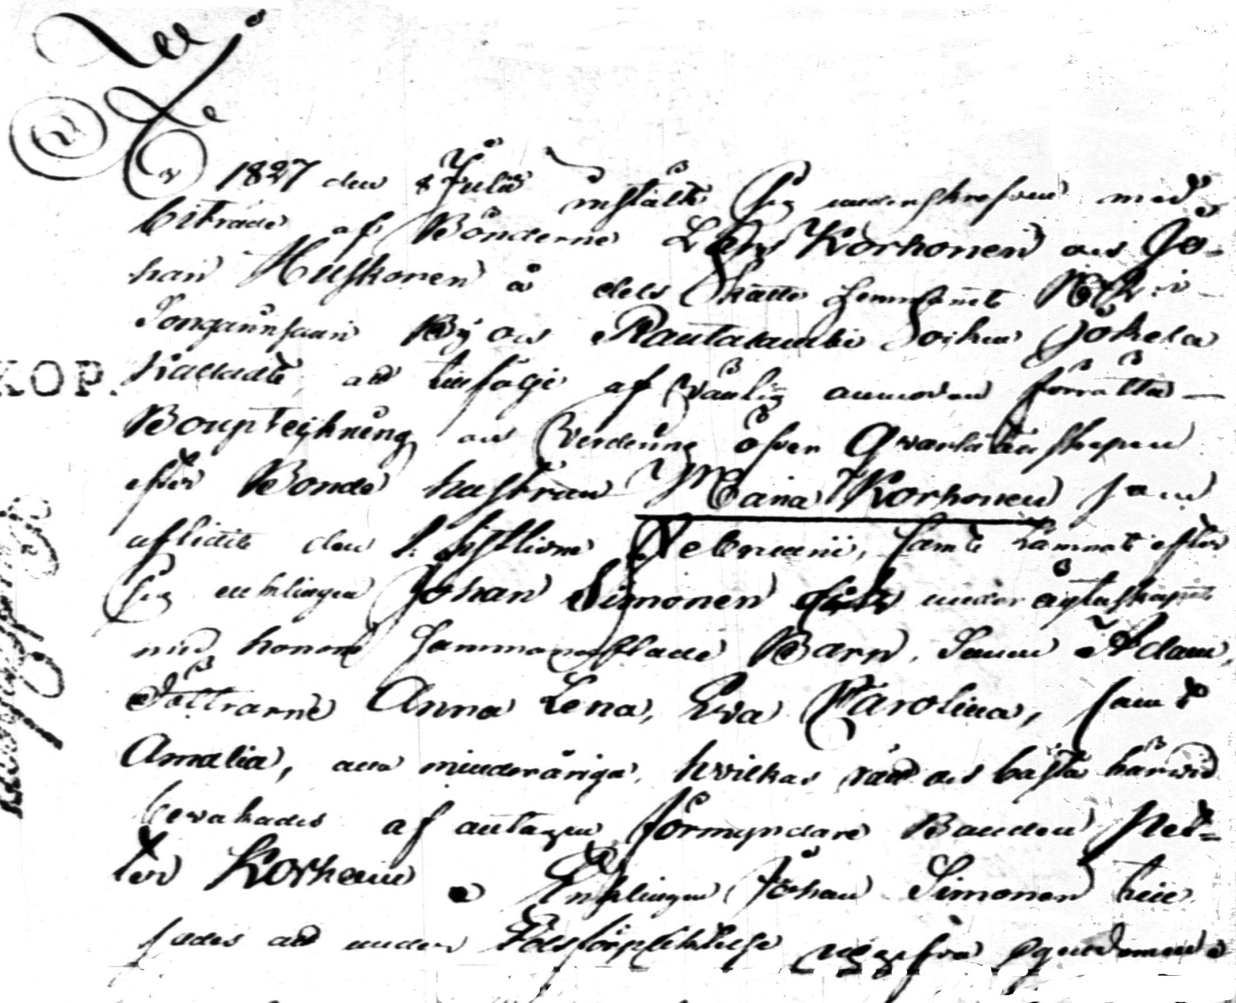 1827 den 8 Julii instälte sig underskrefven med
biträde af Bönderne Lars Korhonen och Jo-
han Huskonen å dels Skatte hemmanet N
By och Rautalambi Sochn Jökela
kallade, att tilfölge af vänlig anmodan förrätta
Bouptekning och Verdering öfver Qvarlåtenskapen
efter Bonde hustrun Maria Korhonen som
aflidit den sistlidne Februarii, samt lämnat efter
sig enklingen Johan Simonen och under ägtaskapet
med honom sammanaflade Barn, Sonen Adam,
Döttrarne Anna Lena, Eva Carolina, samt
Amalia, alla minderåriga, hvilkas rätt och bästa härvid
bevakades af antagen förmyndare Bonden Pet-
ter Korhonen Enklingen Johan Simonen till
sades att under Edsförpliktelse uppgifva egendomen
KOP.